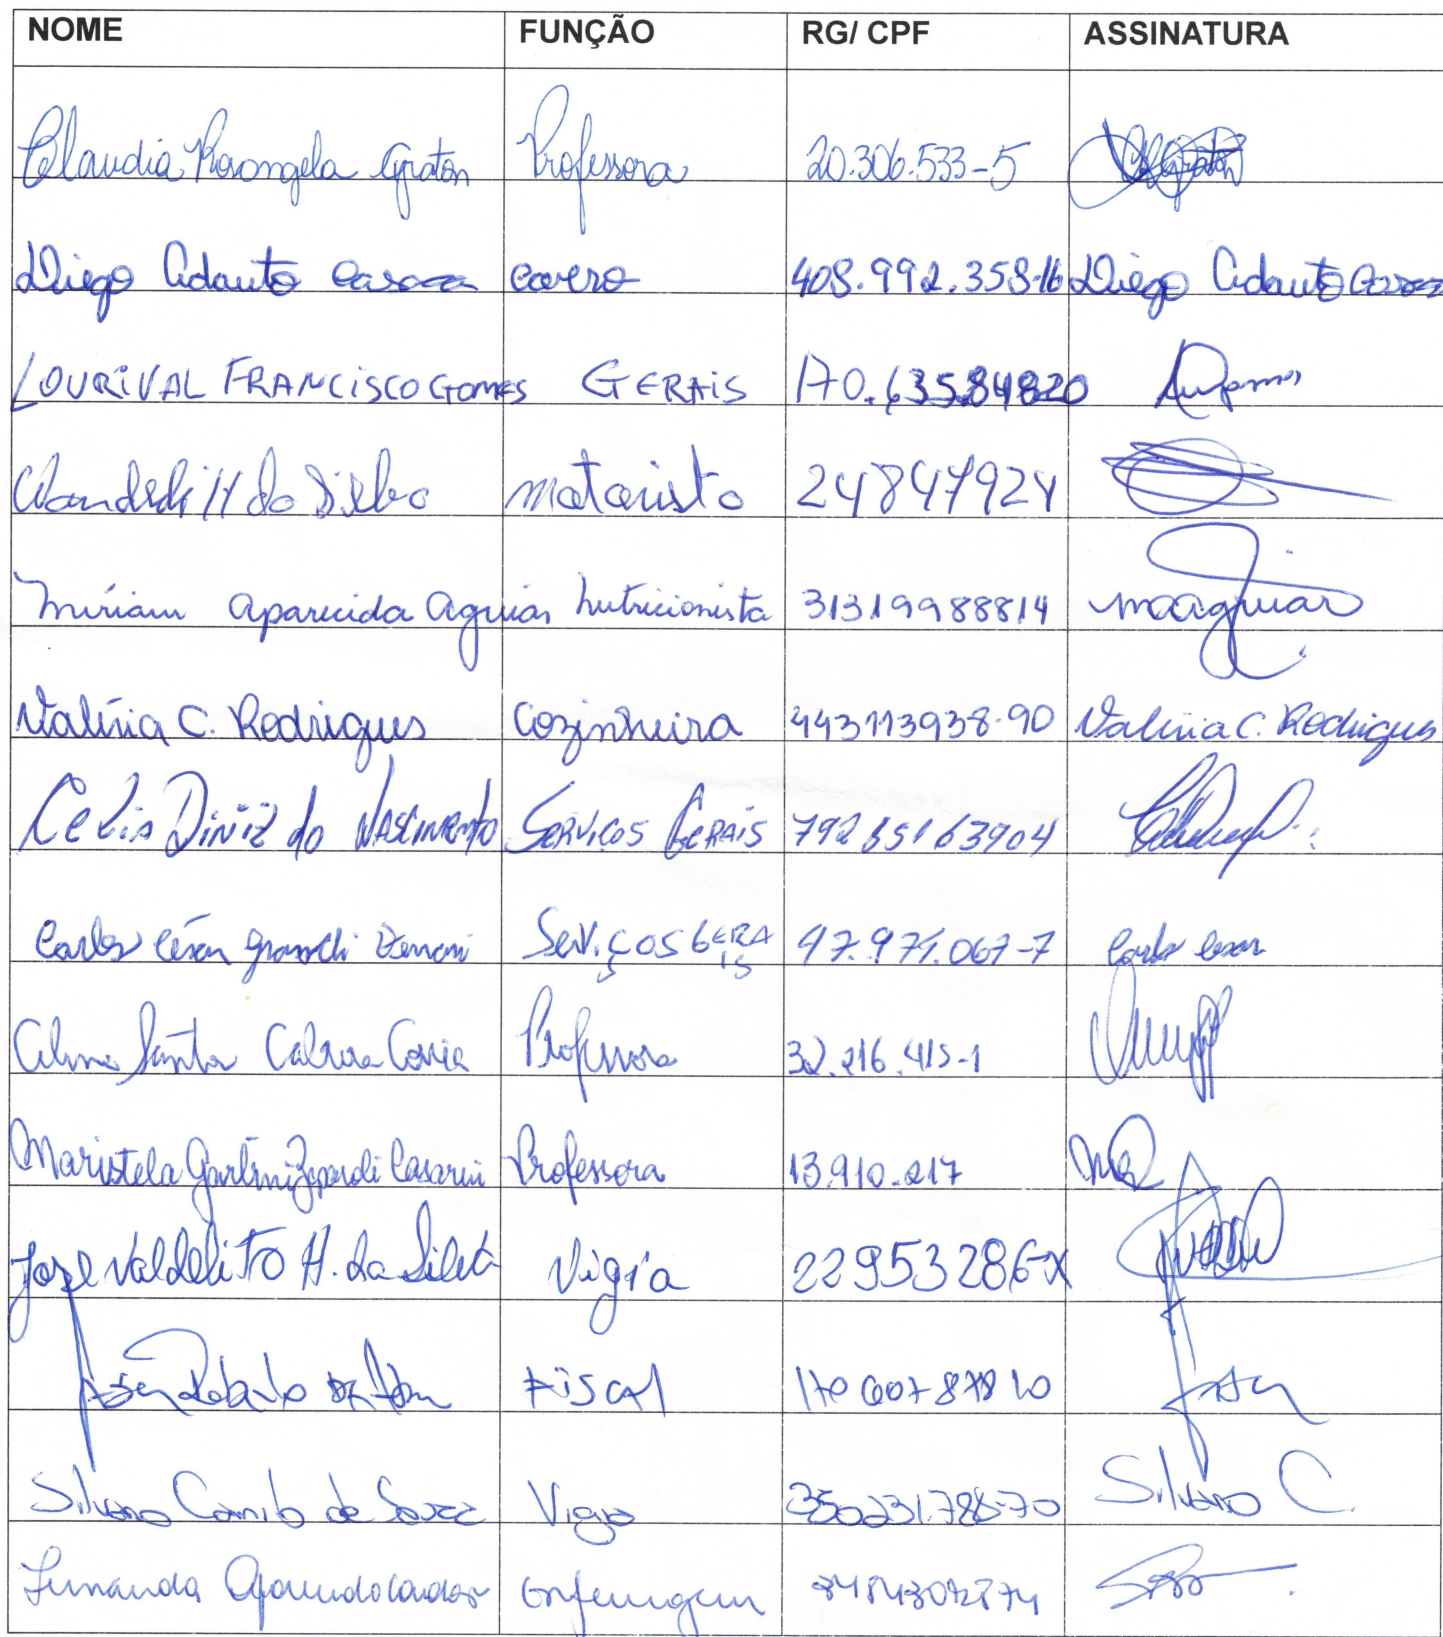 NOME FUNÇÃO RG/ CPF ASSINATURA
Claudia Rosangela Graton Professora 20.306.533-5
Diego Adauto coveiro 408.992.358-16 Diego Adauto
LOURIVAL FRANCISCO GOMES GERAIS 170.63584820
da Silva motorista 24847924
Miriam Aparecida Aguiar Nutricionista 31319988814 maaguiar
Valéria C. Rodrigues Cozinheira 443113938-90 Valéria C. Rodrigues
Celia Diniz do NASCIMENTO SERVIÇOS GERAIS 79265163904
Carlos César Serviços GERAIS 47.971.067-7 Carlos Cesar
Professora 32.216.415-1
Maristela Casarini Professora 13.910.217
José Valdelito H. da Silva Vigia 22953286-X
Roberto Fiscal
Silvano Camilo de Souza Vigia 350231.788-70 Silvano C.
Fernanda Aparecida Cardoso Enfermagem